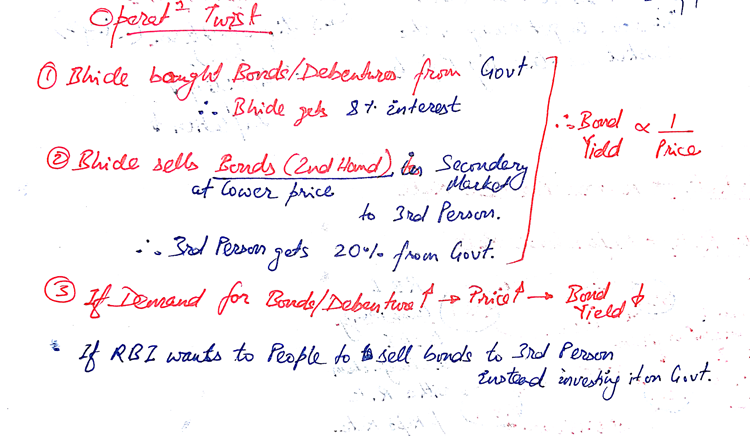 Operatⁿ Twist
① Bhide bought Bonds/Debentures from Govt.
∴ Bhide gets 8% interest
② Bhide sells Bonds (2nd Hand) in Secondery Market
at lower price
to 3rd Person.
∴ 3rd Person gets 20% from Govt.
∴ Bond Yield ∝ 1/Price
③ If Demand for Bonds/Debenture ↑ → Price ↑ → Bond Yield ↓
If RBI wants to People to sell bonds to 3rd Person
instead investing it on Govt.